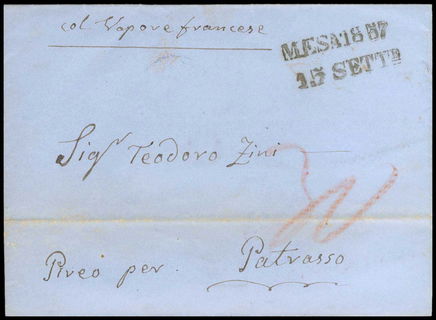 col Vapore francese
MESA 1857
15 SETTE
Sigr Teodoro Zini
Pireo per Patrasso